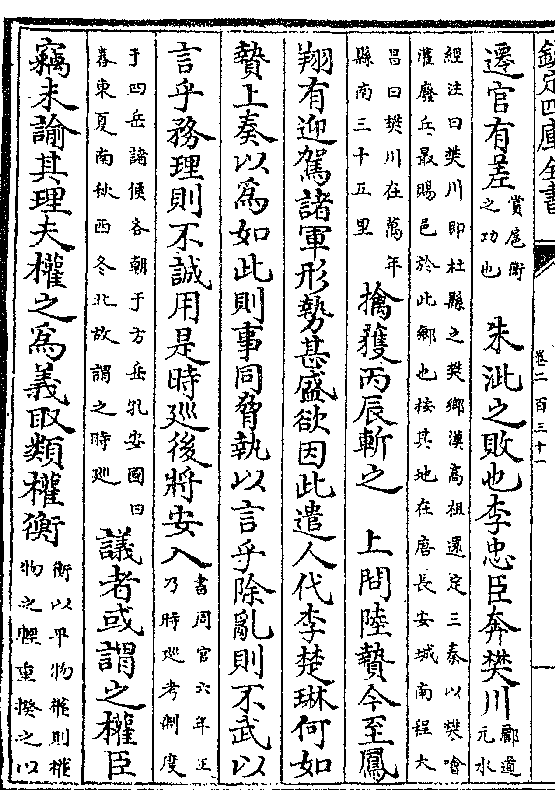 欽定四庫全書
卷二百三十一
遷官有差賞扈衛之功也 朱泚之敗也李忠臣奔樊川酈道元水
經注曰樊川即杜縣之樊鄉漢高祖還定三秦以樊噲灌廢丘最賜邑於此鄉也按其地在唐長安城南程大
昌曰樊川在萬年縣南三十五里擒獲丙辰斬之 上問陸贄今至鳳
翔有迎駕諸軍形勢甚盛欲因此遣人代李楚琳何如
贄上奏以為如此則事同脅執以言乎除亂則不武以
言乎務理則不誠用是時廵後將安入書周官六年王乃時廵考制度
于四岳諸侯各朝于方岳孔安國曰春東夏南秋西冬北故謂之時廵議者或謂之權臣
竊未諭其理夫權之為義取類權衡衡以平物權則權物之輕重揆之以